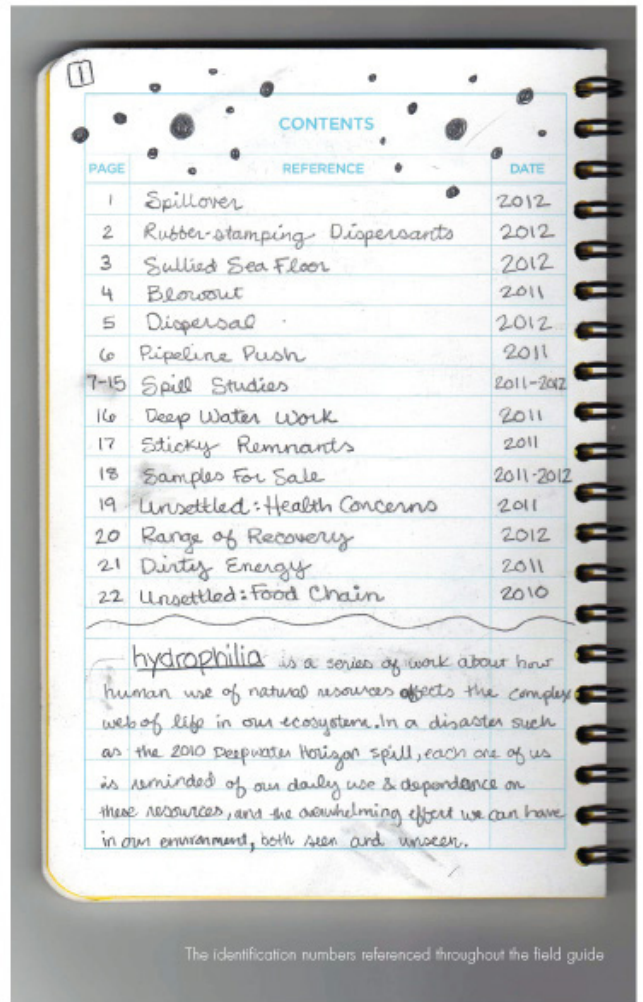 1
CONTENTS
PAGE REFERENCE DATE
1 Spillover 2012
2 Rubber-stamping Dispersants 2012
3 Sullied Sea Floor 2012
4 Blowout 2011
5 Dispersal 2012
6 Pipeline Push 2011
7-15 Spill Studies 2011-2012
16 Deep Water Work 2011
17 Sticky Remnants 2011
18 Samples For Sale 2011-2012
19 Unsettled: Health Concerns 2011
20 Range of Recovery 2012
21 Dirty Energy 2011
22 Unsettled: Food Chain 2010
hydrophilia is a series of work about how
human use of natural resources affects the complex
web of life in our ecosystem. In a disaster such
as the 2010 Deepwater Horizon spill, each one of us
is reminded of our daily use & dependance on
these resources, and the overwhelming effect we can have
in our environment, both seen and unseen.
The identification numbers referenced throughout the field guide